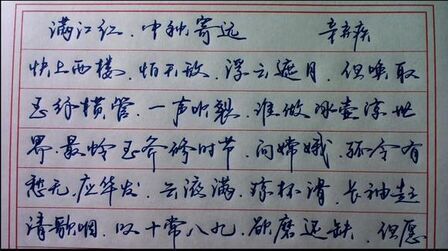 满江红．中秋寄远 辛弃疾
快上西楼，怕天放、浮云遮月．但唤取
玉纤横管，一声吹裂．谁做冰壶凉世
界，最怜玉斧修时节．问嫦娥，孤令有
愁无，应华发．云液满，琼杯滑．长袖起，
清歌咽．叹十常八九，欲磨还缺．但愿